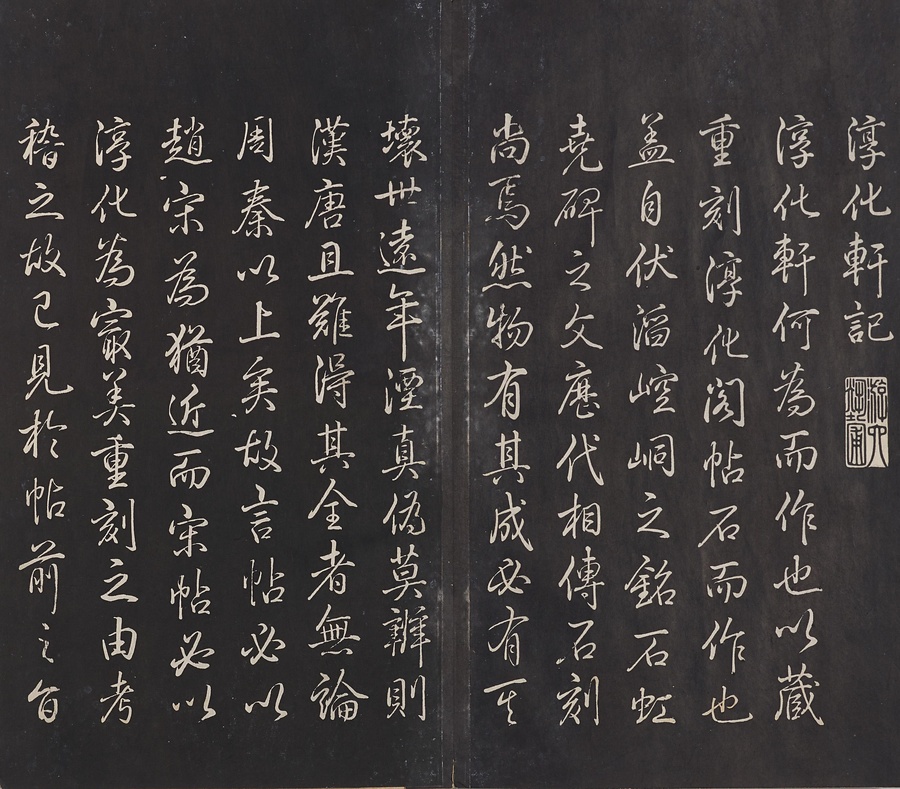 淳化軒記
淳化軒何為而作也以藏
重刻淳化閣帖石而作也
盖自伏滔崆峒之銘石虹
堯碑之文歷代相傳石刻
尚焉然物有其成必有其
壞世遠年湮真偽莫辨則
漢唐且難得其全者無論
周秦以上矣故言帖必以
趙宋為猶近而宋帖必以
淳化為冣美重刻之由考
稽之故已見於帖前之旨